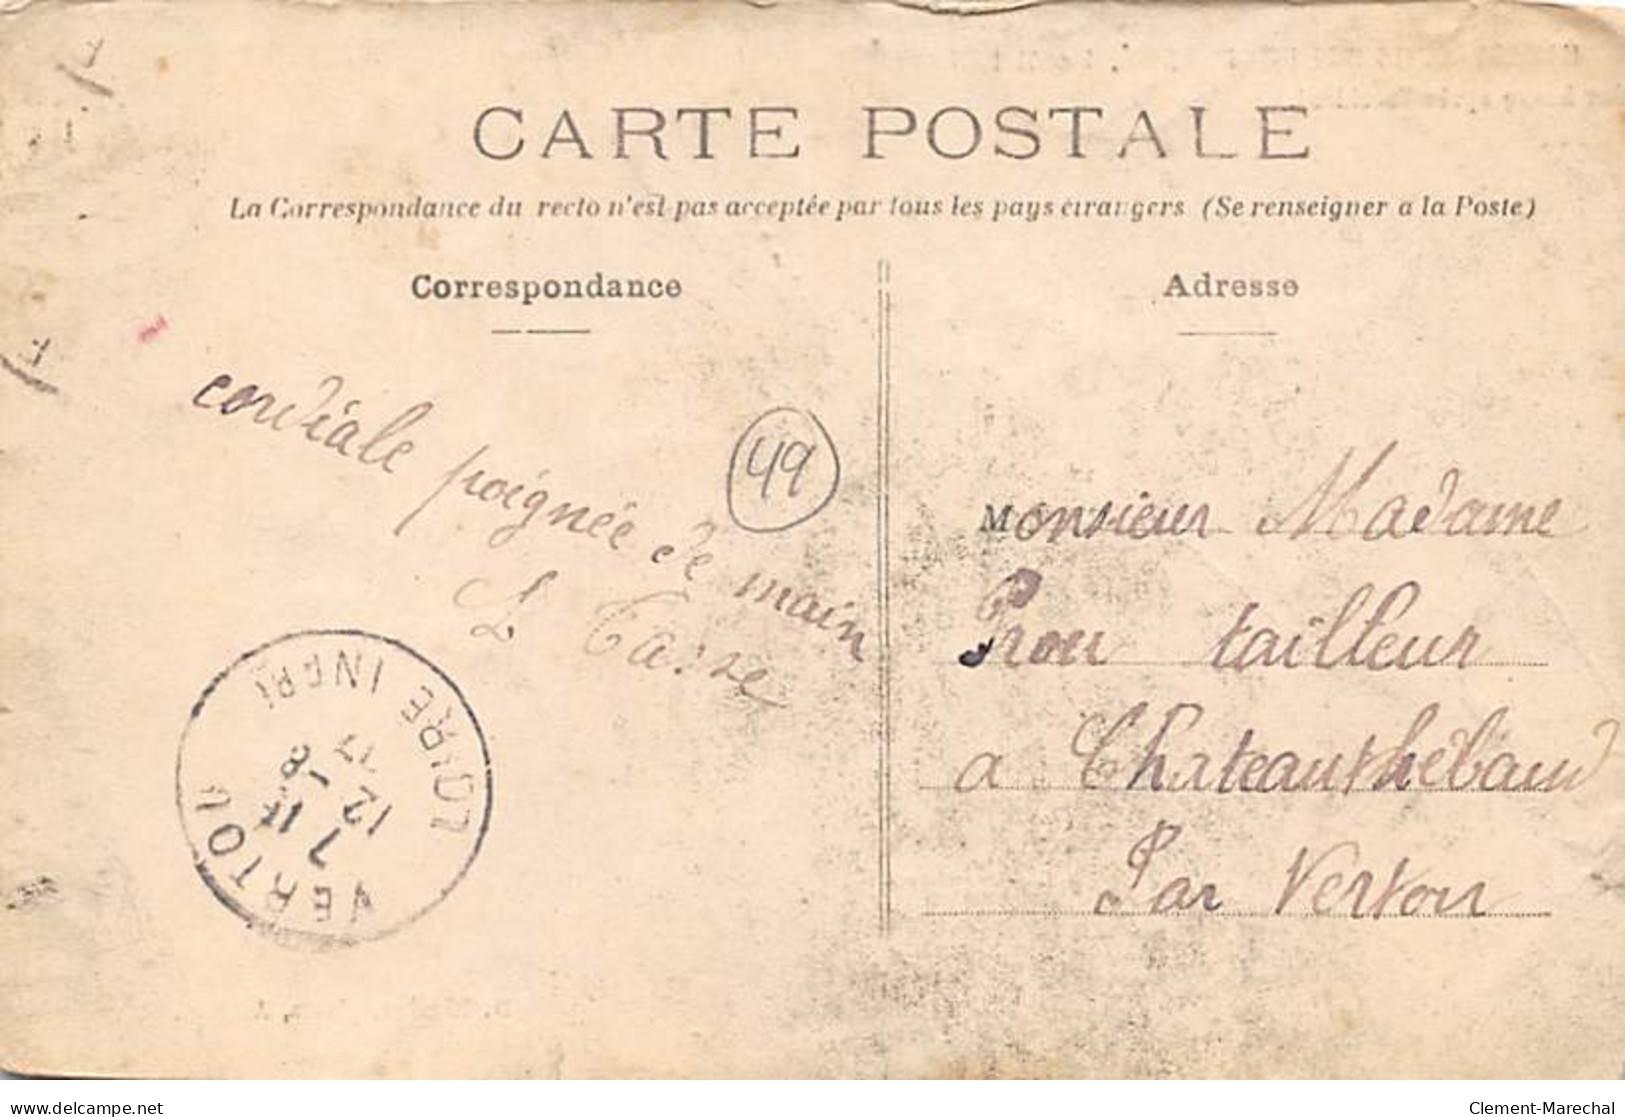 CARTE POSTALE
La Correspondance du recto n'est pas acceptée par tous les pays étrangers (Se renseigner a la Poste)
Correspondance
Adresse
cordiale poignée de main
L Tasse
49
Monsieur Madame
Prou tailleur
a Chateauthébaud
Par Vertou
VERTOU
LOIRE INFRE
7
12 -8
11
delcampe.net
Clement-Marechal